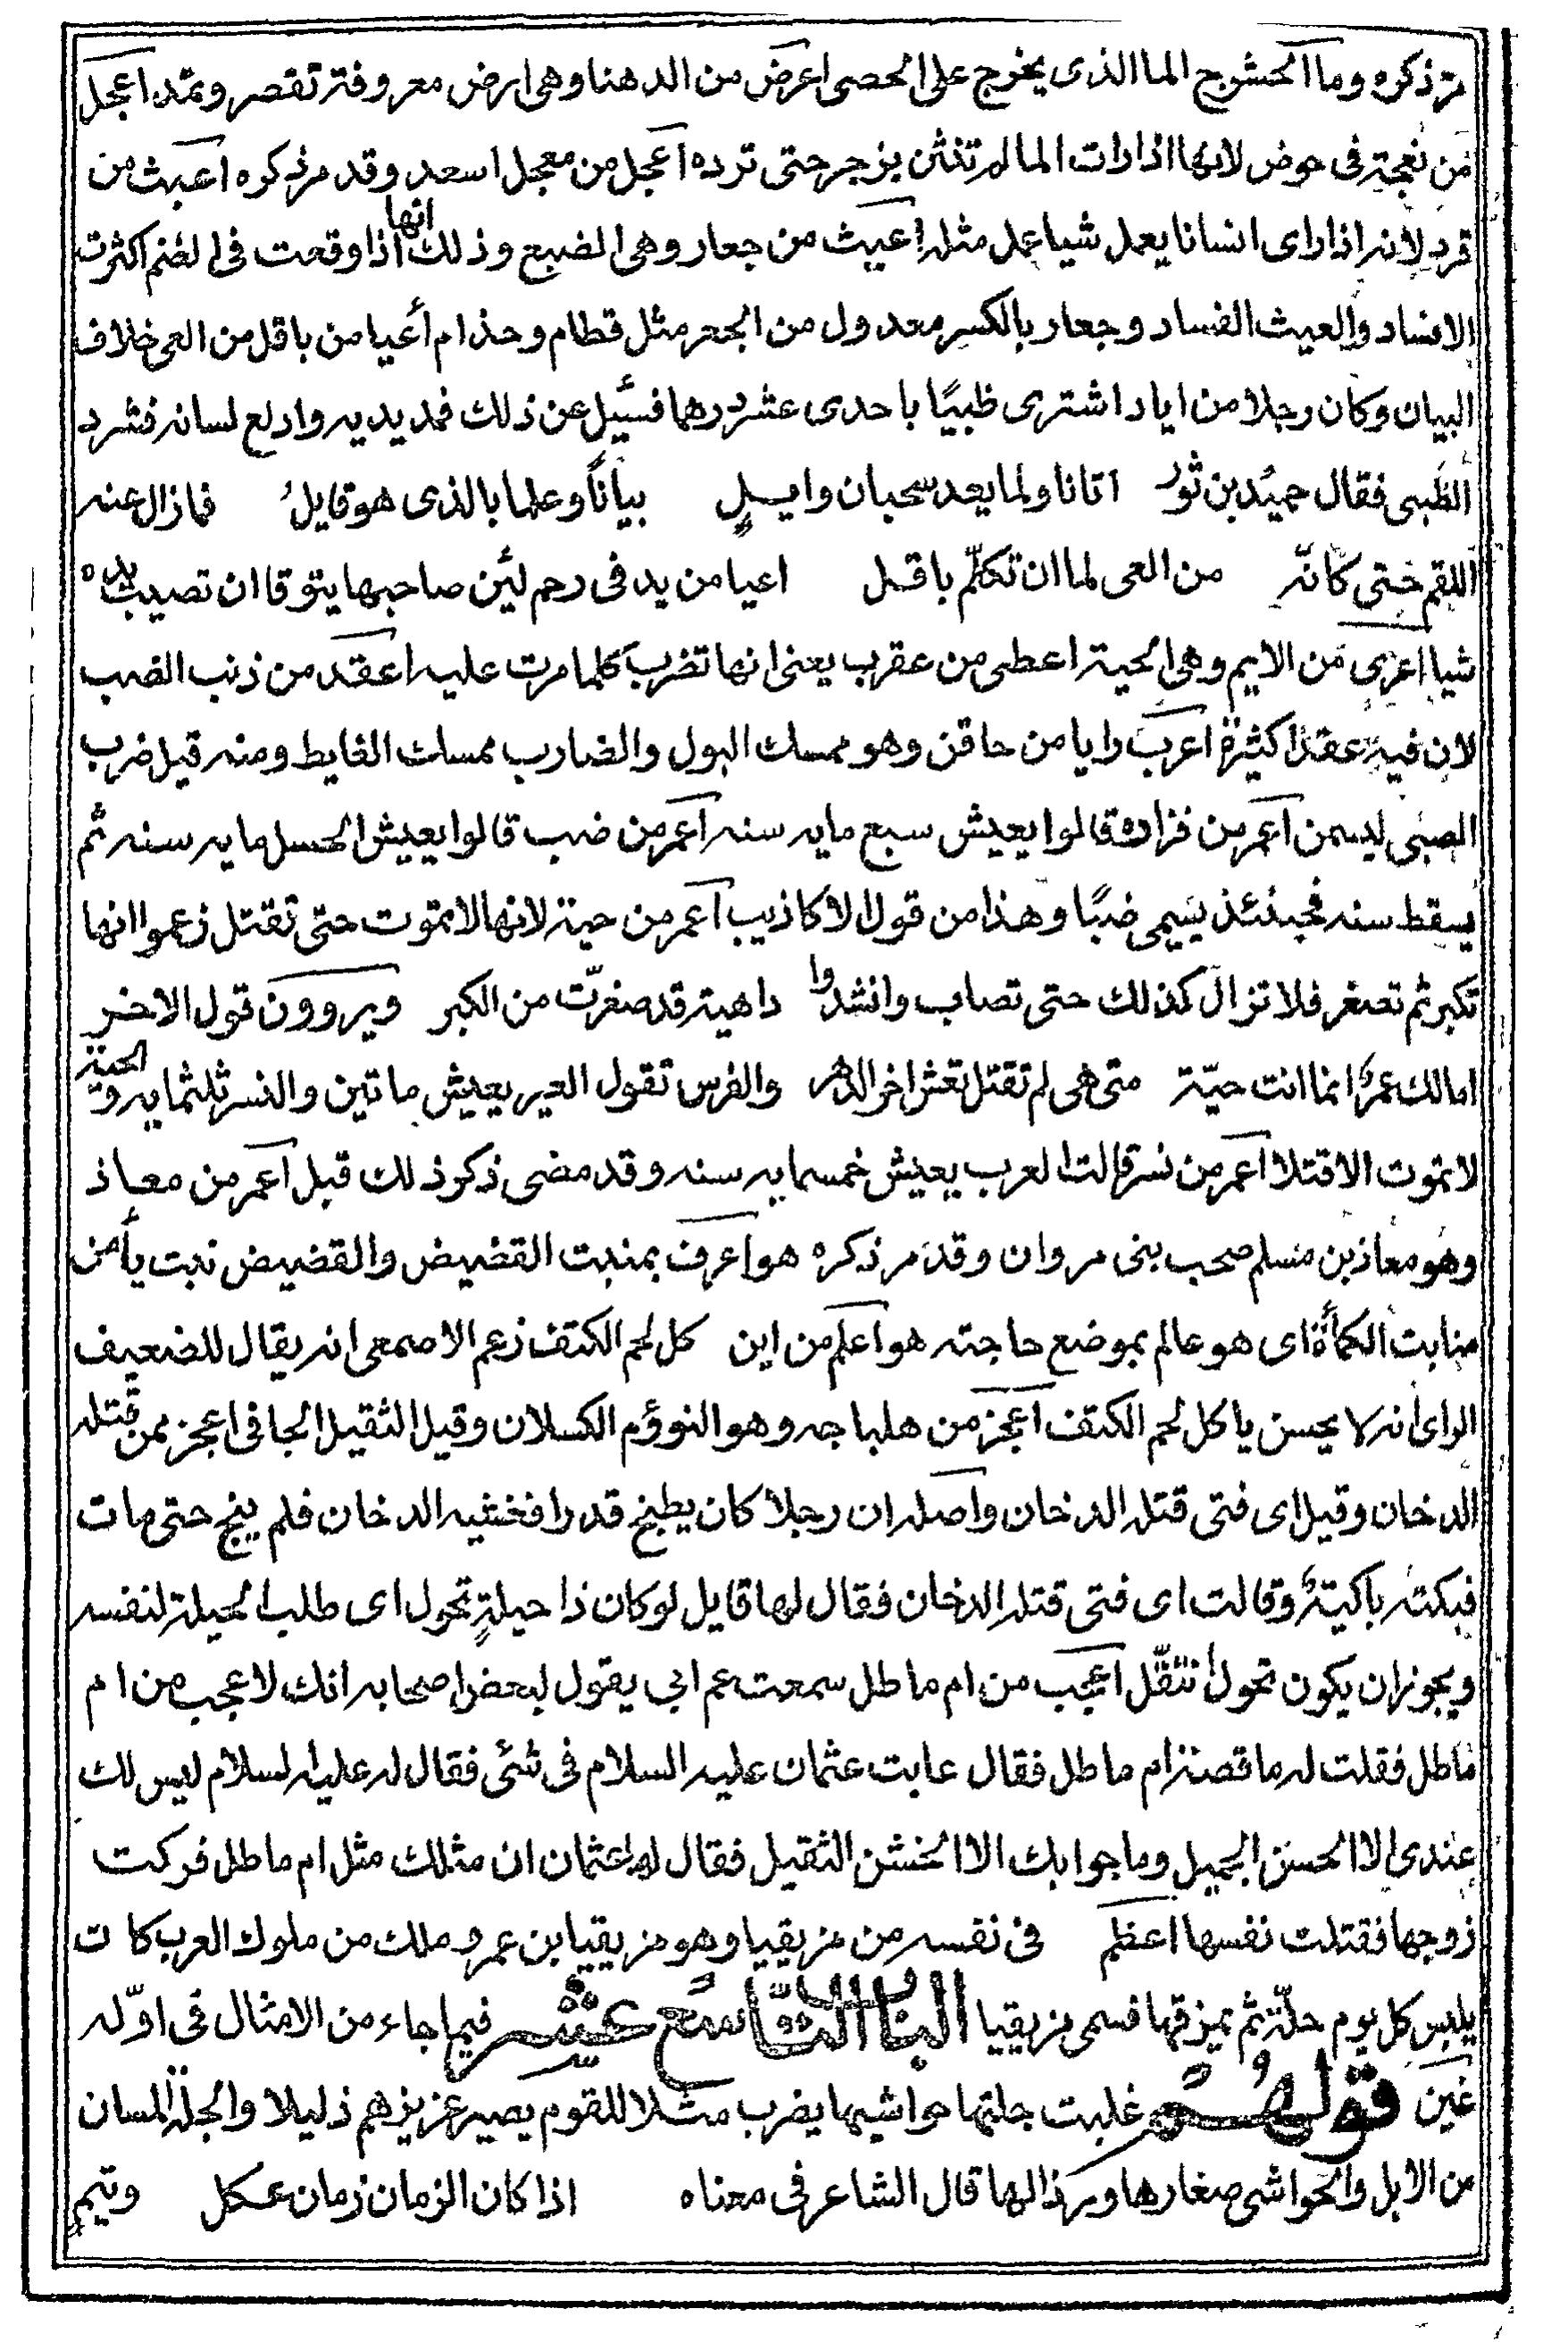 مر ذكره وما الحشرج الما الذى يخرج على الحصى اعرض من الدهنا وهى ارض معروفة تقصر وتمد اعجل
من نعجة فى حوض لانها اذا رات الما لم تنثن بزجر حتى ترده اعجل من معجل اسعد وقد مر ذكره اعبث من
قرد لانه اذا راى انسانا يعمل شيا عمل مثله اعيث من جعار وهى الضبع وذلك انها اذا وقعت فى الغنم اكثرت
الافساد والعيث الفساد وجعار بالكسر معدول من الجعر مثل قطام وحذام أعيا من باقل من العى خلاف
البيان وكان رجلا من اياد اشترى ظبيًا باحدى عشر درهما فسئيل عن ذلك فمد يديه وادلع لسانه فشرد
الظبى فقال حميُد بن ثور اتانا ولما يعد سحبان وايـــل بياناً وعلما بالذى هو قايلُ فما زال عنه
اللقم حتى كانّه من العى لما ان تكلّم باقـل اعيا من يد فى رحم لئن صاحبها يتوقا ان تصيب يده
شيا اعرى من الايم وهى الحية اعطى من عقرب يعنى انها تضرب كلما مرت عليه اعقد من ذنب الضب
لان فيه عقدا كثيرة اعزب رايا من حاقن وهو ممسك البول والضارب ممسك الغايط ومنه قيل ضرب
الصبى ليسمن اعمر من قراده قالوا يعيش سبع مايه سنه اعمر من ضب قالوا يعيش الحسل مايه سنه ثم
يسقط سنه فحينئذ يسمى ضبًا وهذا من قول الاكاذيب اعمر من حية لانها لا تموت حتى تقتل زعموا انها
تكبر ثم تصغر فلا تزال كذلك حتى تصاب وانشدوا داهية قد صغرّت من الكبر ويروون قول الاخر
امالك عمرًا انما انت حيّة متى هى لم تقتل تعش اخر الدهر والفرس تقول العير يعيش ماتين والنسر ثلثمايه والحية
لا تموت الا قتلا اعمر من نسر قالت العرب يعيش خمسمايه سنه وقد مضى ذكر ذلك قبل اعمر من معاذ
وهو معاذ بن مسلم صحب بنى مروان وقد مر ذكره هو اعرف بمنبت القضيض والقضيض نبت يأمن
منابت الكمأة اى هو عالم بموضع حاجته هو اعلم من اين كل لحم الكتف زعم الاصمعى انه يقال للضعيف
الراى انه لا يحسن ياكل لحم الكتف اعجز من هلباجه وهو النوؤم الكسلان وقيل الثقيل الجافى اعجز ممن قتله
الدخان وقيل اى فتى قتله الدخان واصله ان رجلا كان يطبخ قدرا فغشيه الدخان فلم ينج حتى مات
فبكته باكيةٌ وقالت اى فتى قتله الدخان فقال لها قايل لو كان ذا حيلةٍ تحول اى طلب الحيلة لنفسه
ويجوز ان يكون تحول تنقّل اعجب من ام ماطل سمعت عم ابى يقول لبعض اصحابه انك لاعجب من ام
ماطل فقلت له ما قصة ام ماطل فقال عابت عثمان عليه السلام فى شئى فقال له عليه السلام ليس لك
عندى الا الحسن الجميل وما جوابك الا الخشن الثقيل فقال له عثمان ان مثلك مثل ام ماطل فركت
زوجها فقتلت نفسها اعظم فى نفسه من مزيقيا وهو مزيقيا بن عمرو ملك من ملوك العرب كا ت
يلبس كل يوم حلّة ثم يمزقها فسمى مزيقيا الباب التاسع عشر فيما جاء من الامثال فى اوّله
غين قولهم غلبت جلتها حواشيها يضرب مثـلا للقوم يصير عزيزهم ذليلا والجلة المسان
من الابل والحواشى صغارها ورذالها قال الشاعر فى معناه اذا كان الزمان زمان عـكل وتيم